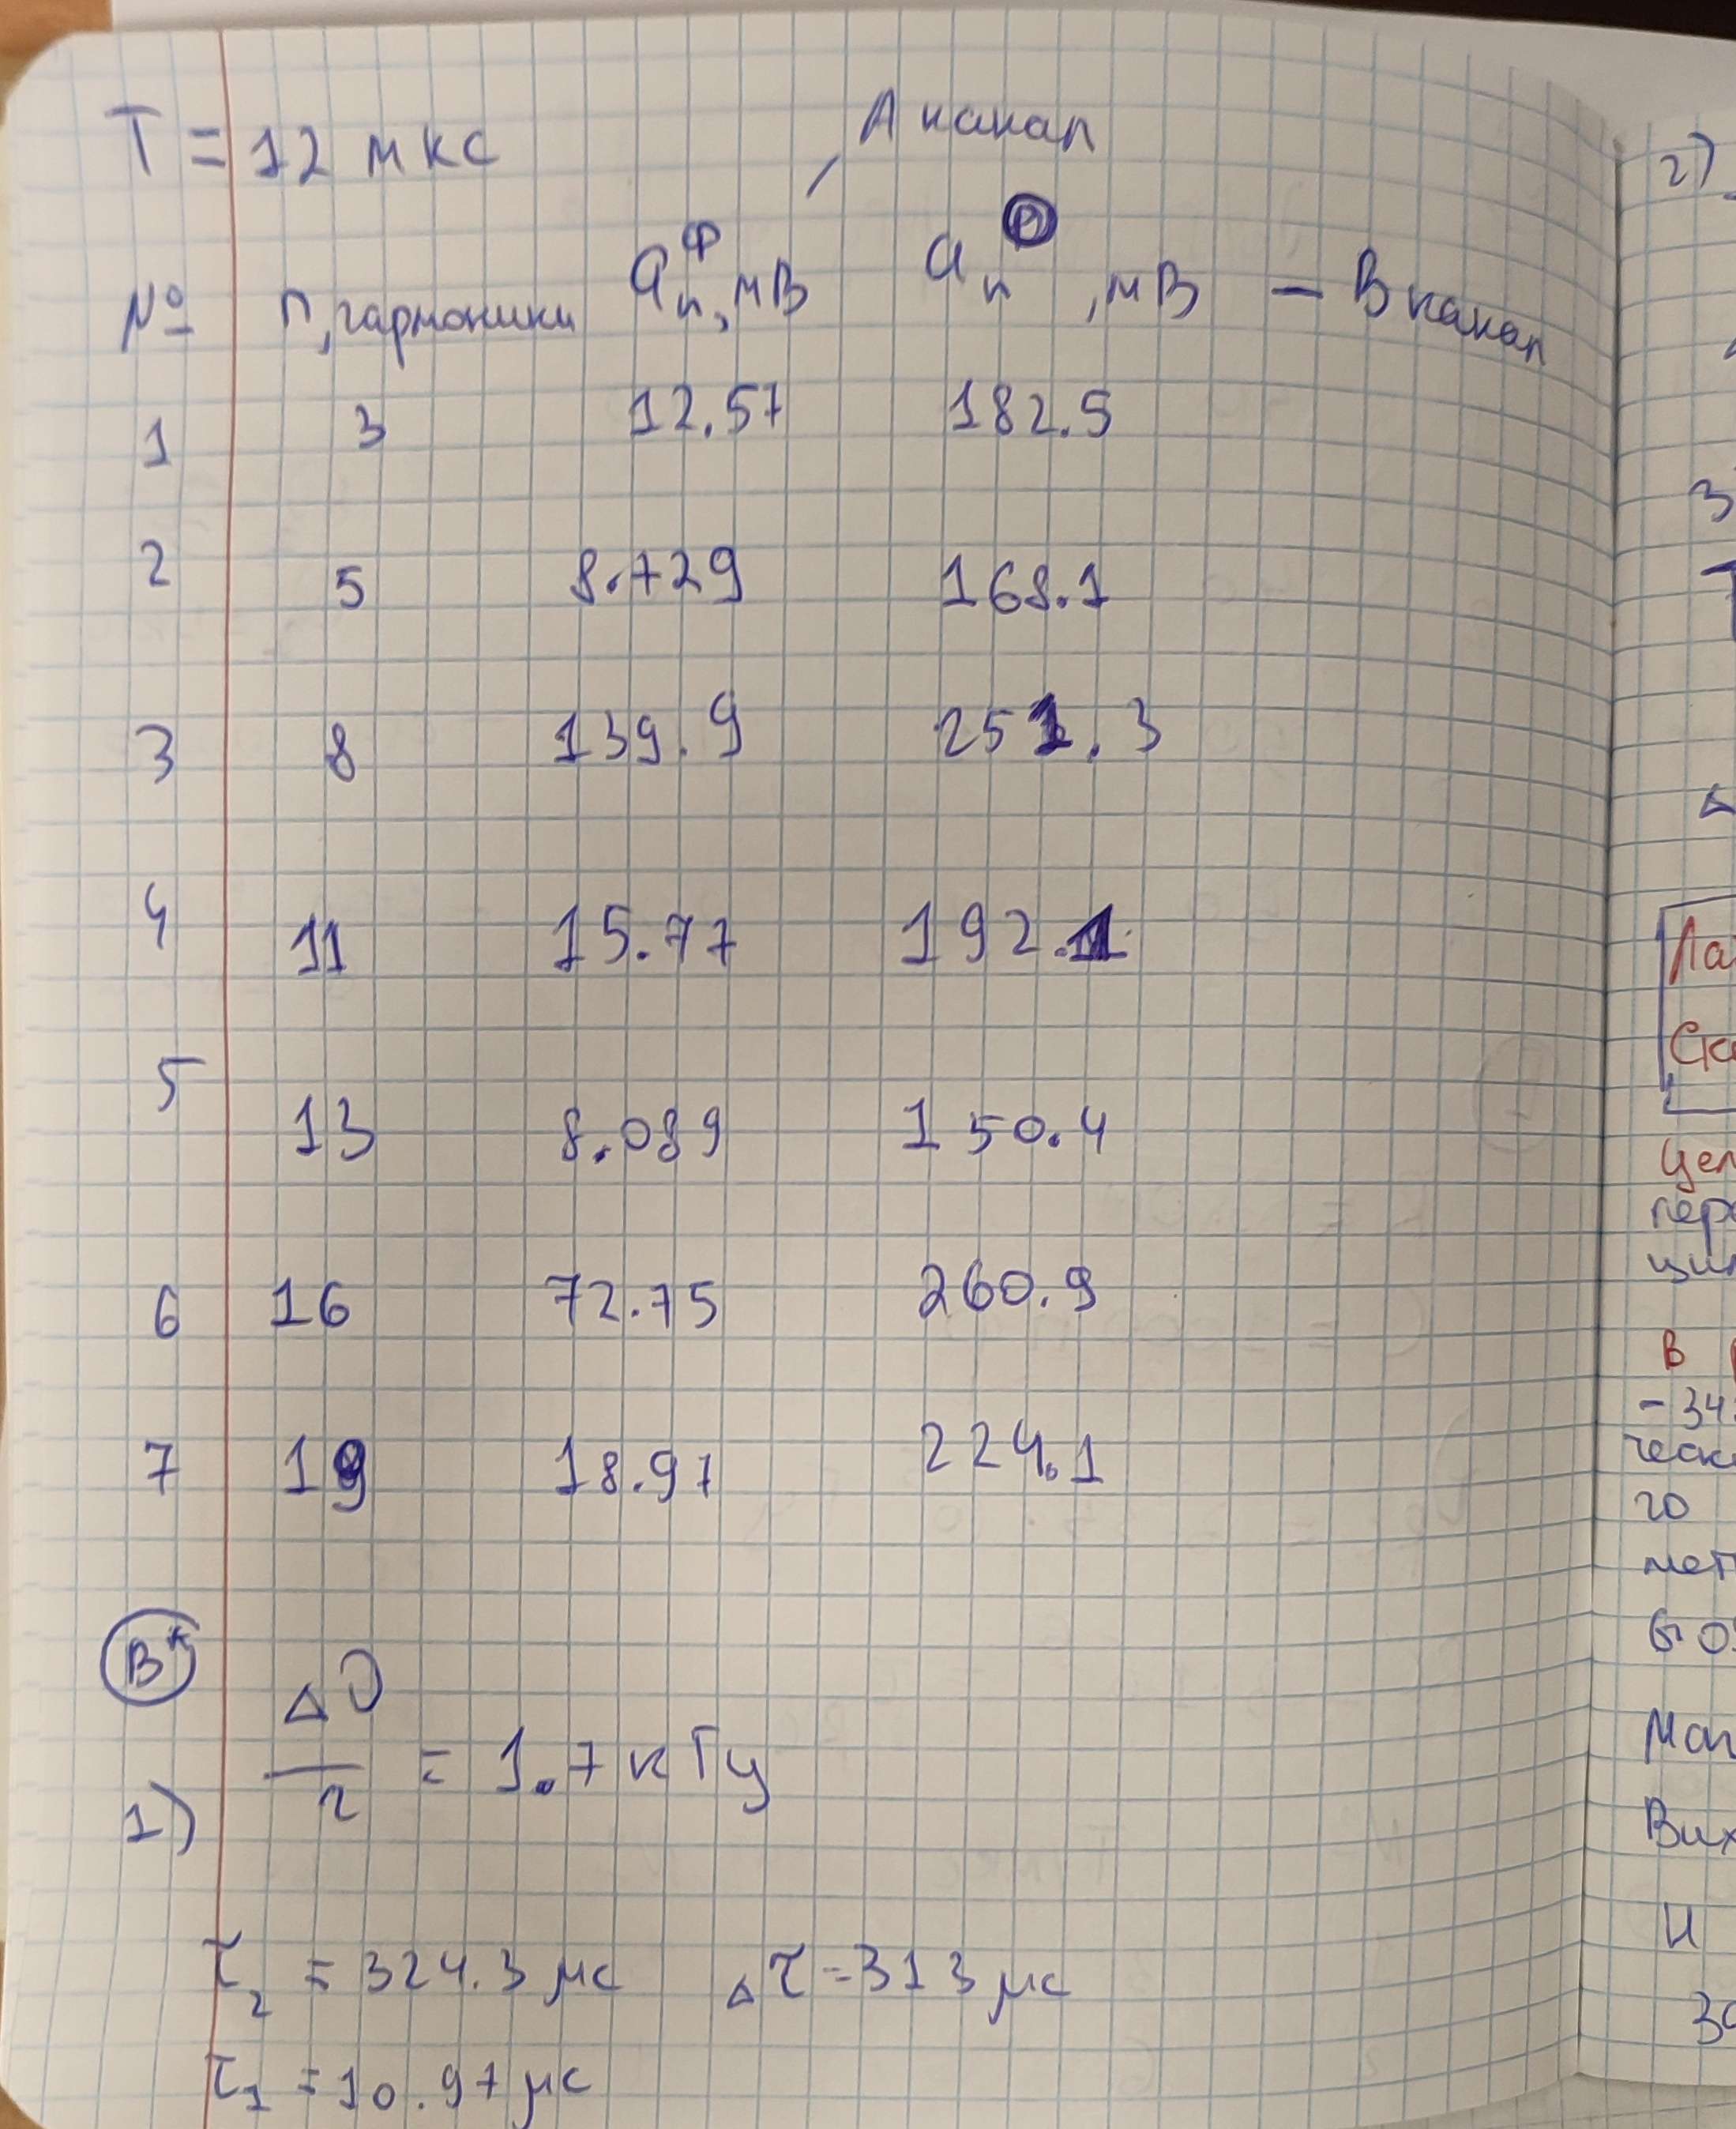 T = 12 мкс
А канал
№ n, гармоники aₙᶲ, мВ aₙ , мВ – В канал
1 3 12.57 182.5
2 5 8.729 168.1
3 8 139.9 251.3
4 11 15.77 192.1
5 13 8.089 150.4
6 16 72.75 260.9
7 19 18.97 224.1
В*
1) Δν/2 = 1.7 кГц
τ₂ = 324.3 μс Δτ = 313 μс
τ₁ = 10.97 μс
2)
3
Цел
пер
В
-
го
Маг
И